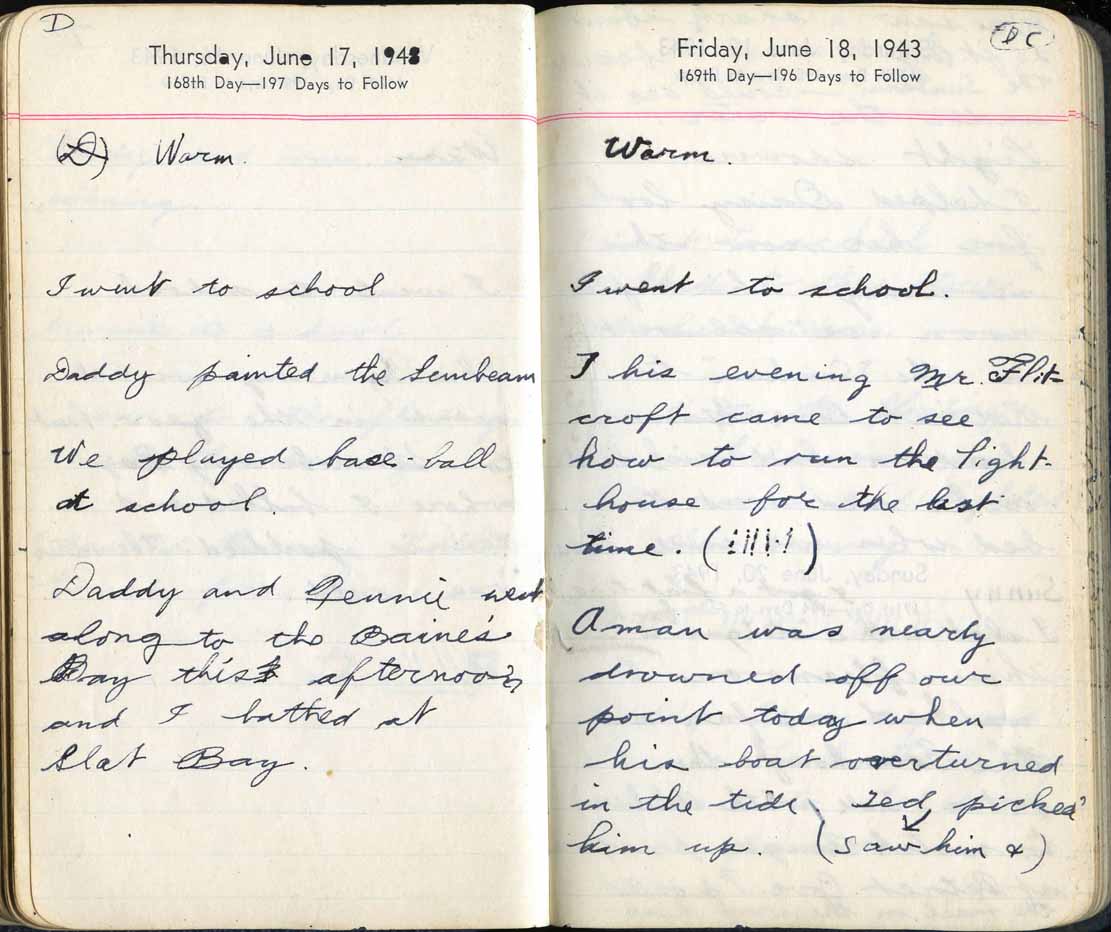 D
Thursday, June 17, 1943
168th Day—197 Days to Follow
(D) Warm.
I went to school
Daddy painted the Sunbeam
We played base-ball
at school.
Daddy and Jennie went
along to the Baine's
Bay this afternoon
and I bathed at
Slat Bay.
DC
Friday, June 18, 1943
169th Day—196 Days to Follow
Warm.
I went to school.
This evening Mr. Flit-
croft came to see
how to run the light-
house for the last
time. (!!!!!)
A man was nearly
drowned off our
point today when
his boat overturned
in the tide. Ted picked
him up. (saw him &)